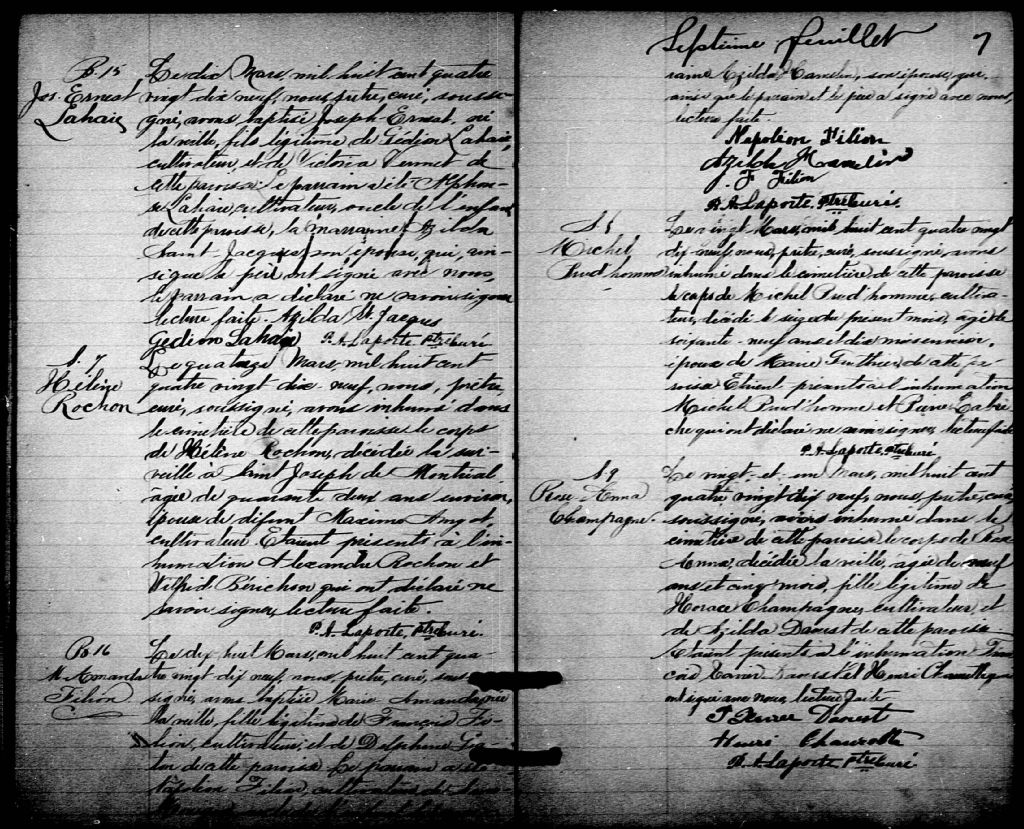 B. 15
Jos. Ernest
Lahaie
Le dix Mars, mil huit cent quatre
vingt dix neuf, nous, prêtre, curé, soussi-
gné, avons baptisé Joseph-Ernest, né
la veille, fils légitime de Gédéon Lahaie,
cultivateur et de Victoria de
cette paroisse. Le parrain a été Alphon-
se Lahaie, cultivateur, oncle de l'enfant
de cette paroisse, la marraine Azilda
Saint-Jacques, son épouse, qui, ain-
si que le père ont signé avec nous,
le parrain a déclaré ne savoir signer
lecture faite. Azilda St. Jacques
Gédéon Lahaie P. A. Laporte, ptre curé
S. 7
Hélène
Rochon
Le quatorze Mars, mil huit cent
quatre vingt dix neuf, nous, prêtre
curé, soussigné, avons inhumé dans
le cimetière de cette paroisse le corps
de Hélène Rochon, décédée la sur-
veille à Saint Joseph de Montréal
agée de quarante deux ans environ,
épouse de défunt Maxime
cultivateur. Etaient présents à l'in-
humation Alexandre Rochon et
Wilfrid qui ont déclaré ne
savoir signer, lecture faite.
P. A. Laporte, ptre curé.
B. 16
M. Amanda
Filion
Le dix huit Mars, mil huit cent qua-
tre vingt dix neuf, nous, prêtre, curé, sous
signé, avons baptisé Marie Amanda, née
la veille, fille légitime de François Fi-
lion, cultivateur, et de Delphine
de cette paroisse Le parrain a été
Napoléon Filion, cultivateur
Septième feuillet 7
raine Azilda Hamelin, son épouse, qui,
ainsi que le parrain et le père a signé avec nous,
lecture faite
Napoléon Filion
Azilda Hamelin
F Filion
P. A. Laporte, ptre curé.
S. 8
Michel
Prud'homme
Le vingt Mars, mil huit cent quatre vingt
dix-neuf, nous, prêtre, curé, soussigné, avons
inhumé dans le cimetière de cette paroisse
le corps de Michel Prud'homme, cultiva-
teur, décédé le seize du présent mois, agé de
soixante-neuf ans et dix mois environ,
époux de Marie Gauthier de cette pa-
roisse Etaient présents à l'inhumation
Michel Prud'homme et Pierre Labrè-
che qui ont déclaré ne savoir signer, lecture faite
P. A. Laporte, ptre curé
S. 9
Rose-Anna
Champagne.
Le vingt et un Mars, mil huit cent
quatre vingt dix neuf, nous, prêtre, curé
soussigné, avons inhumé dans le
cimetière de cette paroisse le corps de Rose
Anna, décédée la veille, agée de neuf
ans et cinq mois, fille légitime de
Horace Champagne, cultivateur et
de Azilda Daoust de cette paroisse.
Etaient présents à l'inhumation
Xavier Daoust et Henri
ont signé avec nous, lecture faite
Xavier Daoust
Henri
P. A. Laporte ptre curé